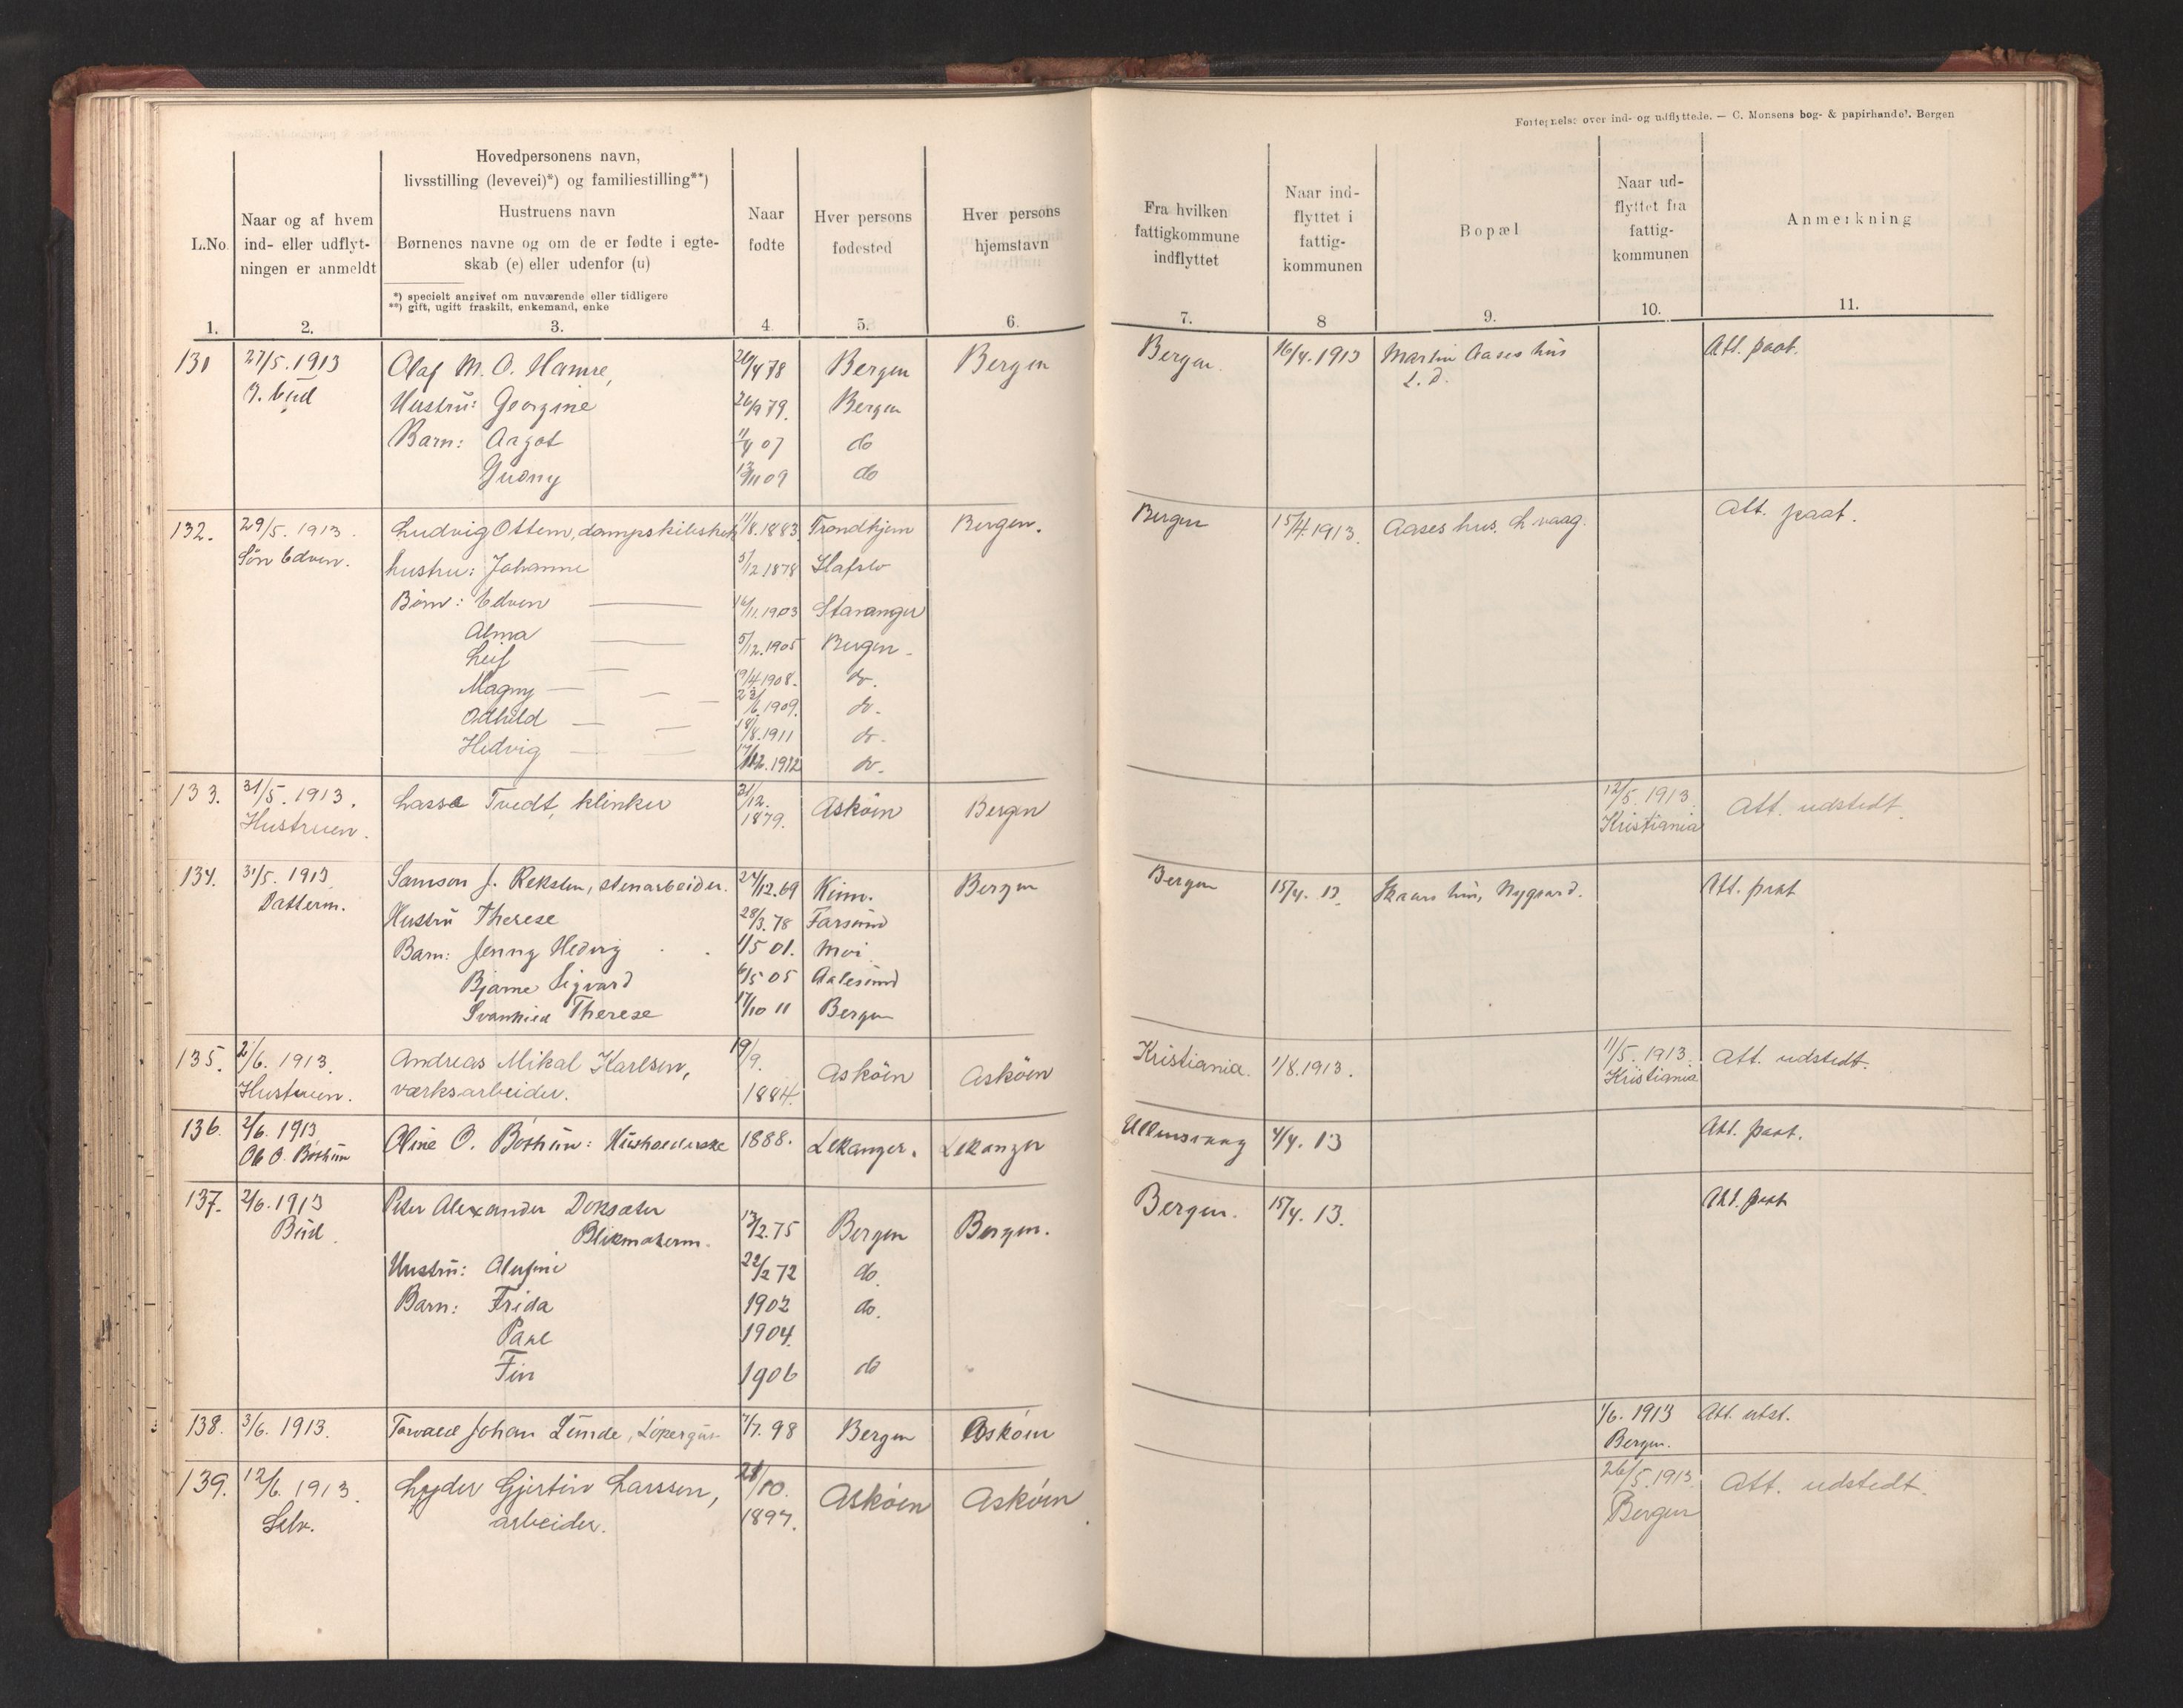 Fortegnelse over ind- og udflyttede. — C. Monsens bog- & papirhandel. Bergen
L.No.
Naar og af hvem
ind- eller udflyt-
ningen er anmeldt
Hovedpersonens navn,
livsstilling (levevei)*) og familiestilling**)
Hustruens navn
Børnenes navne og om de er fødte i egte-
skab (e) eller udenfor (u)
*) specielt angivet om nuværende eller tidligere
**) gift, ugift fraskilt, enkemand, enke
Naar
fødte
Hver persons
fødested
Hver persons
hjemstavn
Fra hvilken
fattigkommune
indflyttet
Naar ind-
flyttet i
fattig-
kommunen
Bopæl
Naar ud-
flyttet fra
fattig-
kommunen
Anmerkning
1. 2. 3. 4. 5. 6. 7. 8 9. 10. 11.
131 27/5. 1913 Olaf M. O. Hamre, 4 78 Bergen Bergen Bergen. 16/4. 1913 Martin Aases hus Att. paat.
Bud Hustru: Georgine 26/9 79. Bergen L. d.
Barn: Aagot 07 do
Gudny 13/11 09 do
132. 29/5. 1913. Ludvig Ottem, dampskibs 11/8. 1883 Trondhjem Bergen. Bergen 15/4. 1913. Aases hus. L vaag. Att. paat.
Søn Edven. hustru: Johanne 5/12 1878 Hafslo
Børn: Edven 16/11. 1903 Stavanger
Alma 5/12. 1905 Bergen.
Leif 19/4 1908. do.
Magny 23/6. 1909. do.
Odhild 18/8. 1911 do.
Hedvig 17/12. 1912 do.
133. 31/5. 1913. Lasse Tvedt, klinker 31/12. 1879. Askøen Bergen 12/5. 1913. Att. udstedt.
Hustruen. Kristiania
134. 31/5. 1913 Samson J. Reksten, stenarbeider. 24/12. 69 Kinn. Bergen Bergen 15/4. 13. Skaars hus, Nygaard. Att. paat
Datterm. Hustru Therese 28/3. 78 Farsund
Barn: Jenny Hedvig 1/5 01. Moi
Bjarne Sigvard 6/5 05 Aalesund
Svanhild Therese 17/10 11 Bergen
135. 2/6. 1913. Andreas Mikal Karlsen, 19/9. 1884. Askøen Askøen Kristiania. 1/8. 1913. 11/5. 1913. Att. udstedt.
Hustruen. værksarbeider. Kristiania
136. 2/6. 1913 Oline O. Bøthun: Husholderske 1888. Lekanger. Lekanger Ullensvang 4/4. 13 Att. paat.
Ole O. Bøthun
137. 2/6. 1913 Peter Alexander Doksæter 13/2. 75 Bergen Bergen. Bergen. 15/4. 13. Att. paat
Bud. Blikmaterm.
Hustru: Alufine 22/2 72 do.
Barn: Frida 1902 do.
Paul 1904.
Fin 1906 do
138. 3/6. 1913. Torvald Johan Lunde, Løpergut 7/7. 98 Bergen Askøen 1/6. 1913 Att. utst.
Bergen.
139. 12/6. 1913. Lyder Gjertin Larssen, 28/10. 1897. Askøen Askøen 26/5. 1913. Att. udstedt.
Selv. arbeider. Bergen